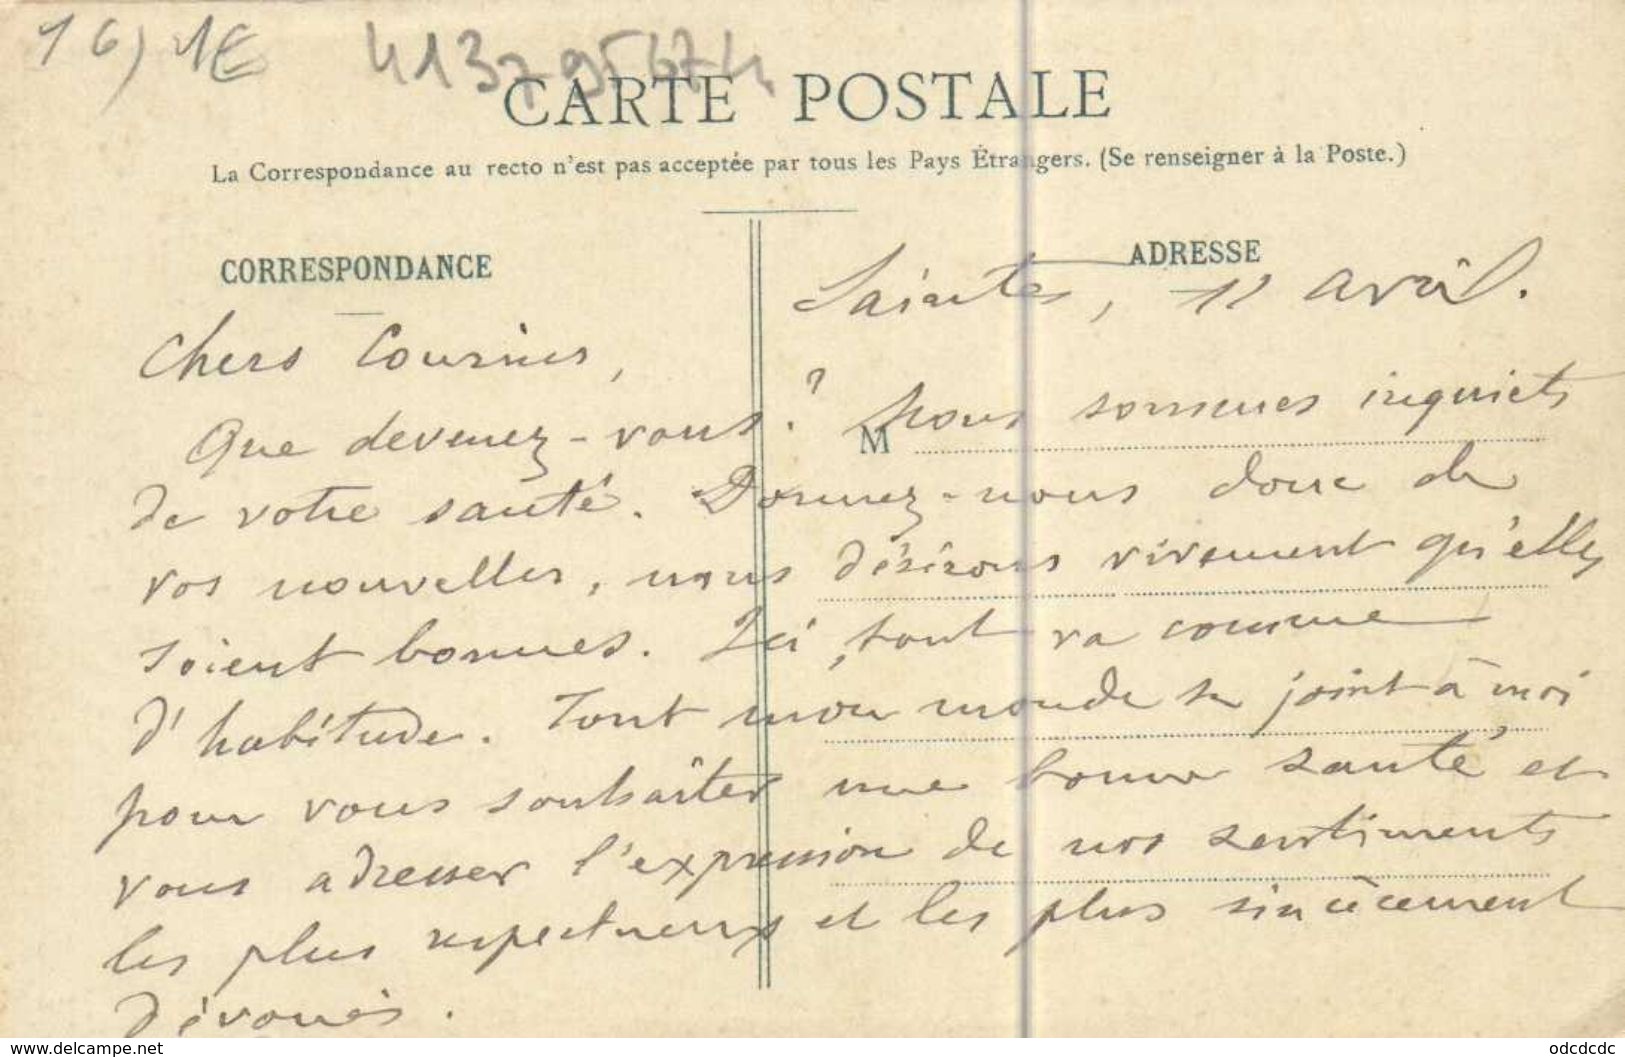 16) 1€ 413795674
CARTE POSTALE
La Correspondance au recto n'est pas acceptée par tous les Pays Étrangers. (Se renseigner à la Poste.)
CORRESPONDANCE
ADRESSE
Saintes, 11 avril.
Chers Cousins,
Que devenez-vous? Nous sommes inquiets
M
de votre santé. Donnez-nous donc de
vos nouvelles, nous désirons vivement qu'elles
soient bonnes. Ici, tout va comme
d'habitude. Tout mon monde se joint à moi
pour vous souhaiter une bonne santé et
vous adresser l'expression de nos sentiments
les plus respectueux et les plus sincèrement
dévoués.
delcampe.net
odcdcdc